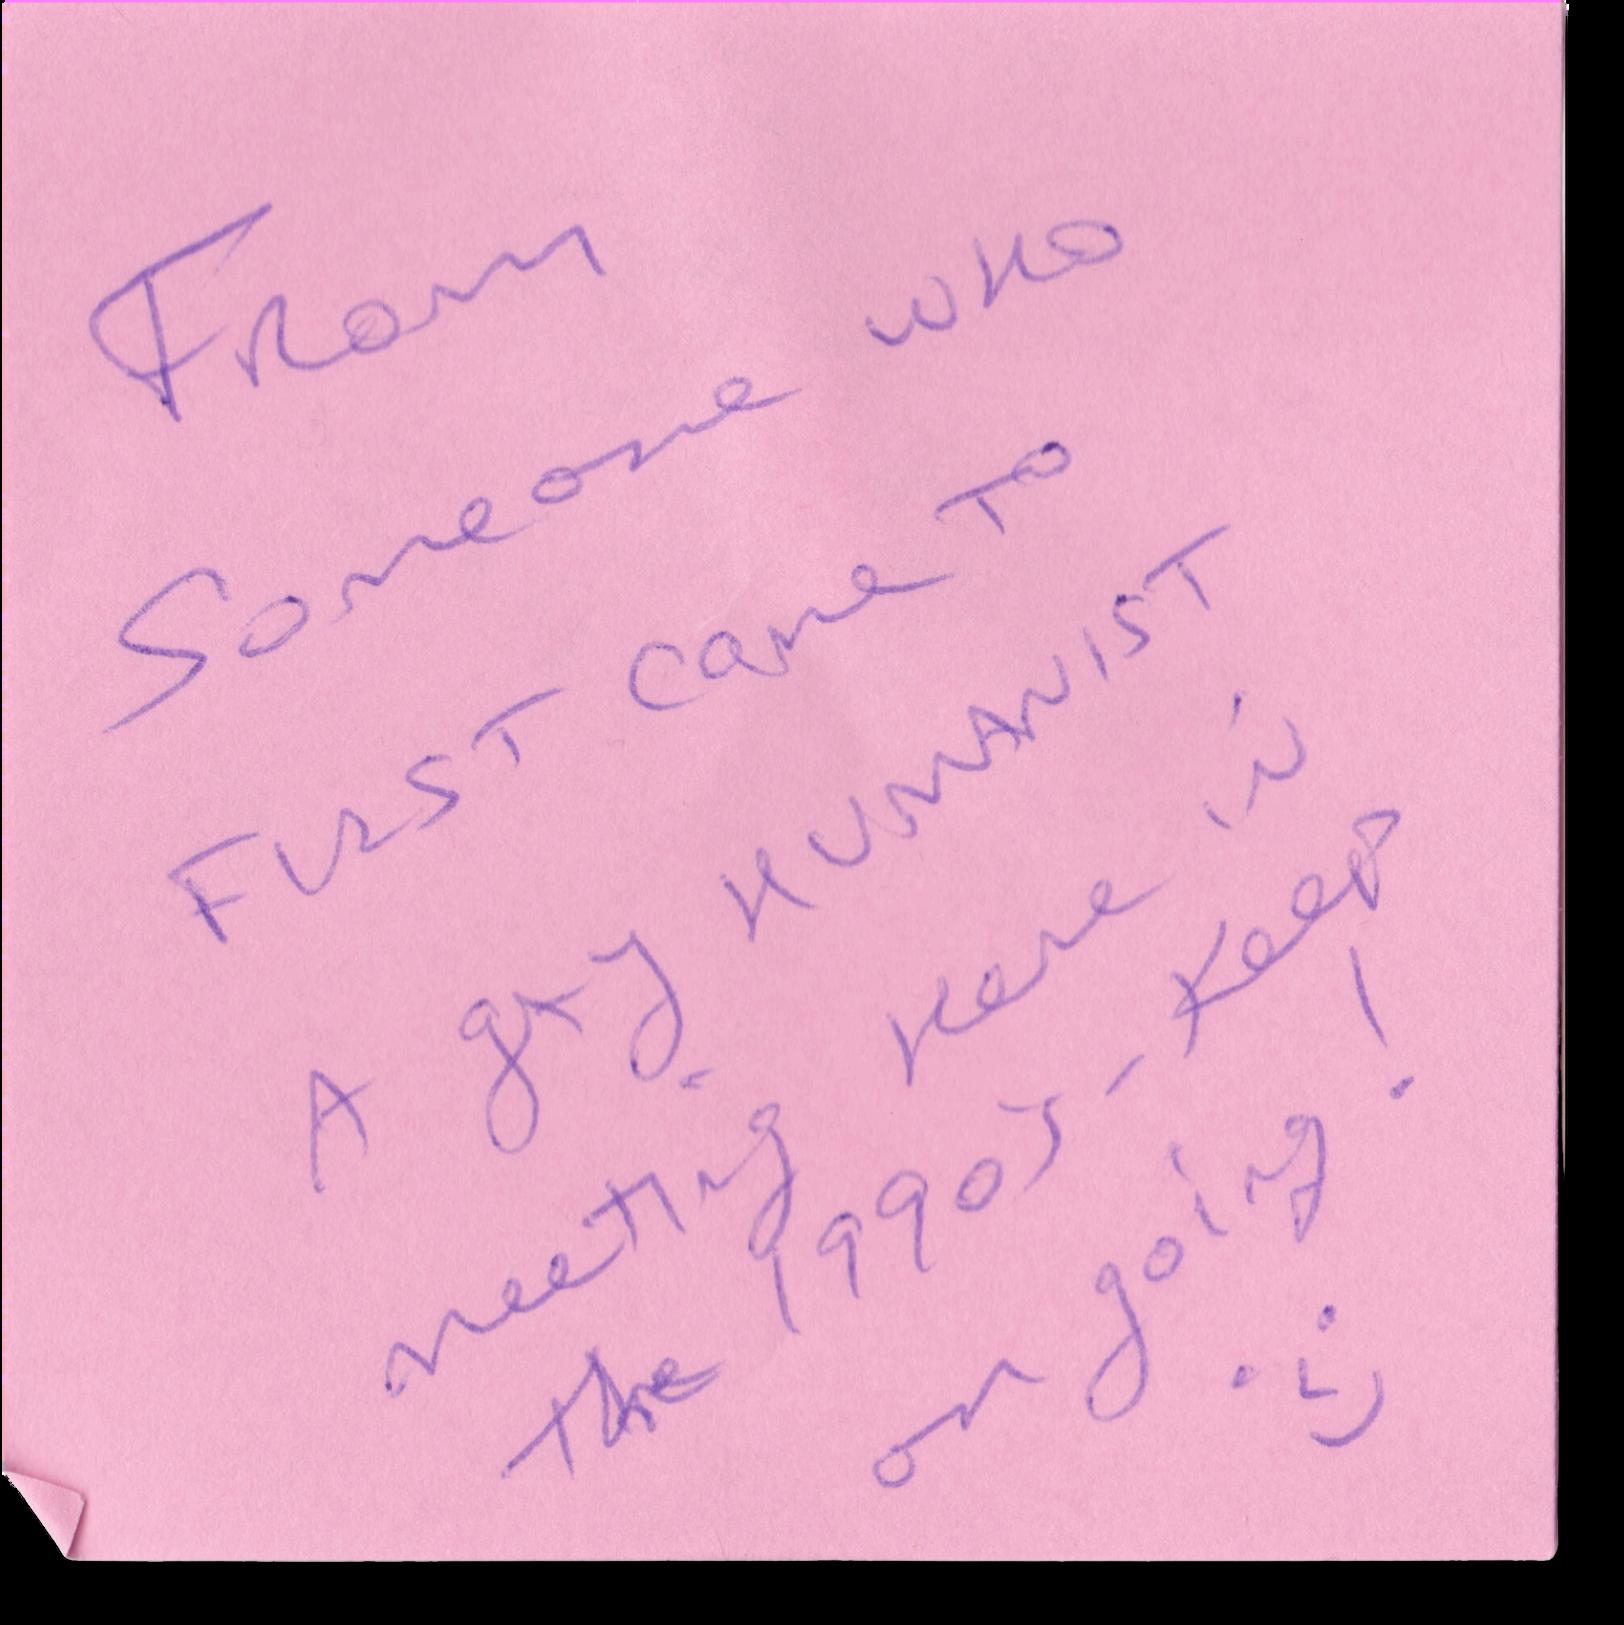 From
Someone who
FIRST came To
A gay HUMANIST
meeting Here in
the 1990s - Keep
on going!